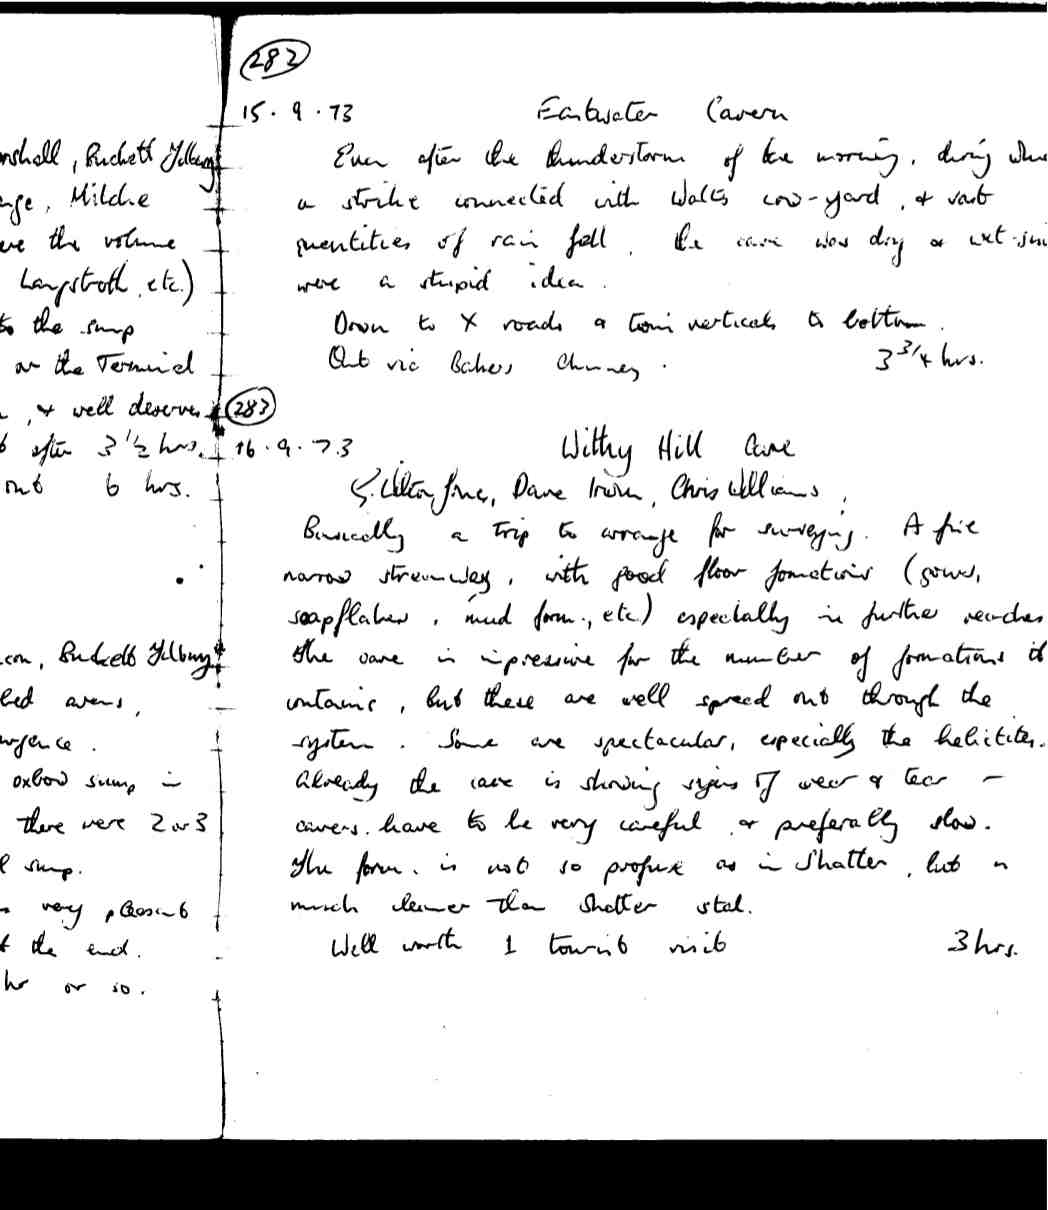 nshall, Buckett Tilbury
nge, Mildie
ve the volume
Langstroth, etc.)
to the sump
on the Terminal
, & well deserves
after 3 1/2 hrs.
out 6 hrs.
con, Buckett Tilbury
bed avens,
urgence.
oxbow sump in
there were 2 or 3
l sump.
very pleasant
t the end.
hr or so.
282
15.9.73 Eastwater Cavern
Even after the thunderstorm of the morning, during whi
a strike connected with Walts cow-yard, & vast
quantities of rain fell, the cave was dry & wet-sui
were a stupid idea.
Down to X roads & twin verticals to bottom.
Out via Bakers Chimney. 3 3/4 hrs.
283
16.9.73 Withy Hill Cave
Jones, Dave Irwin, Chris Williams,
Basically a trip to arrange for surveying. A fine
narrow streamway, with good floor formations (gours,
soapflakes, mud form., etc) especially in further reaches
The cave is impressive for the number of formations it
contains, but these are well spread out through the
system. Some are spectacular, especially the helictites.
Already the cave is showing signs of wear & tear -
cavers have to be very careful & preferably slow.
The form. is not so profuse as in Shatter, but is
much cleaner than Shatter stal.
Well worth 1 tourist visit 3 hrs.